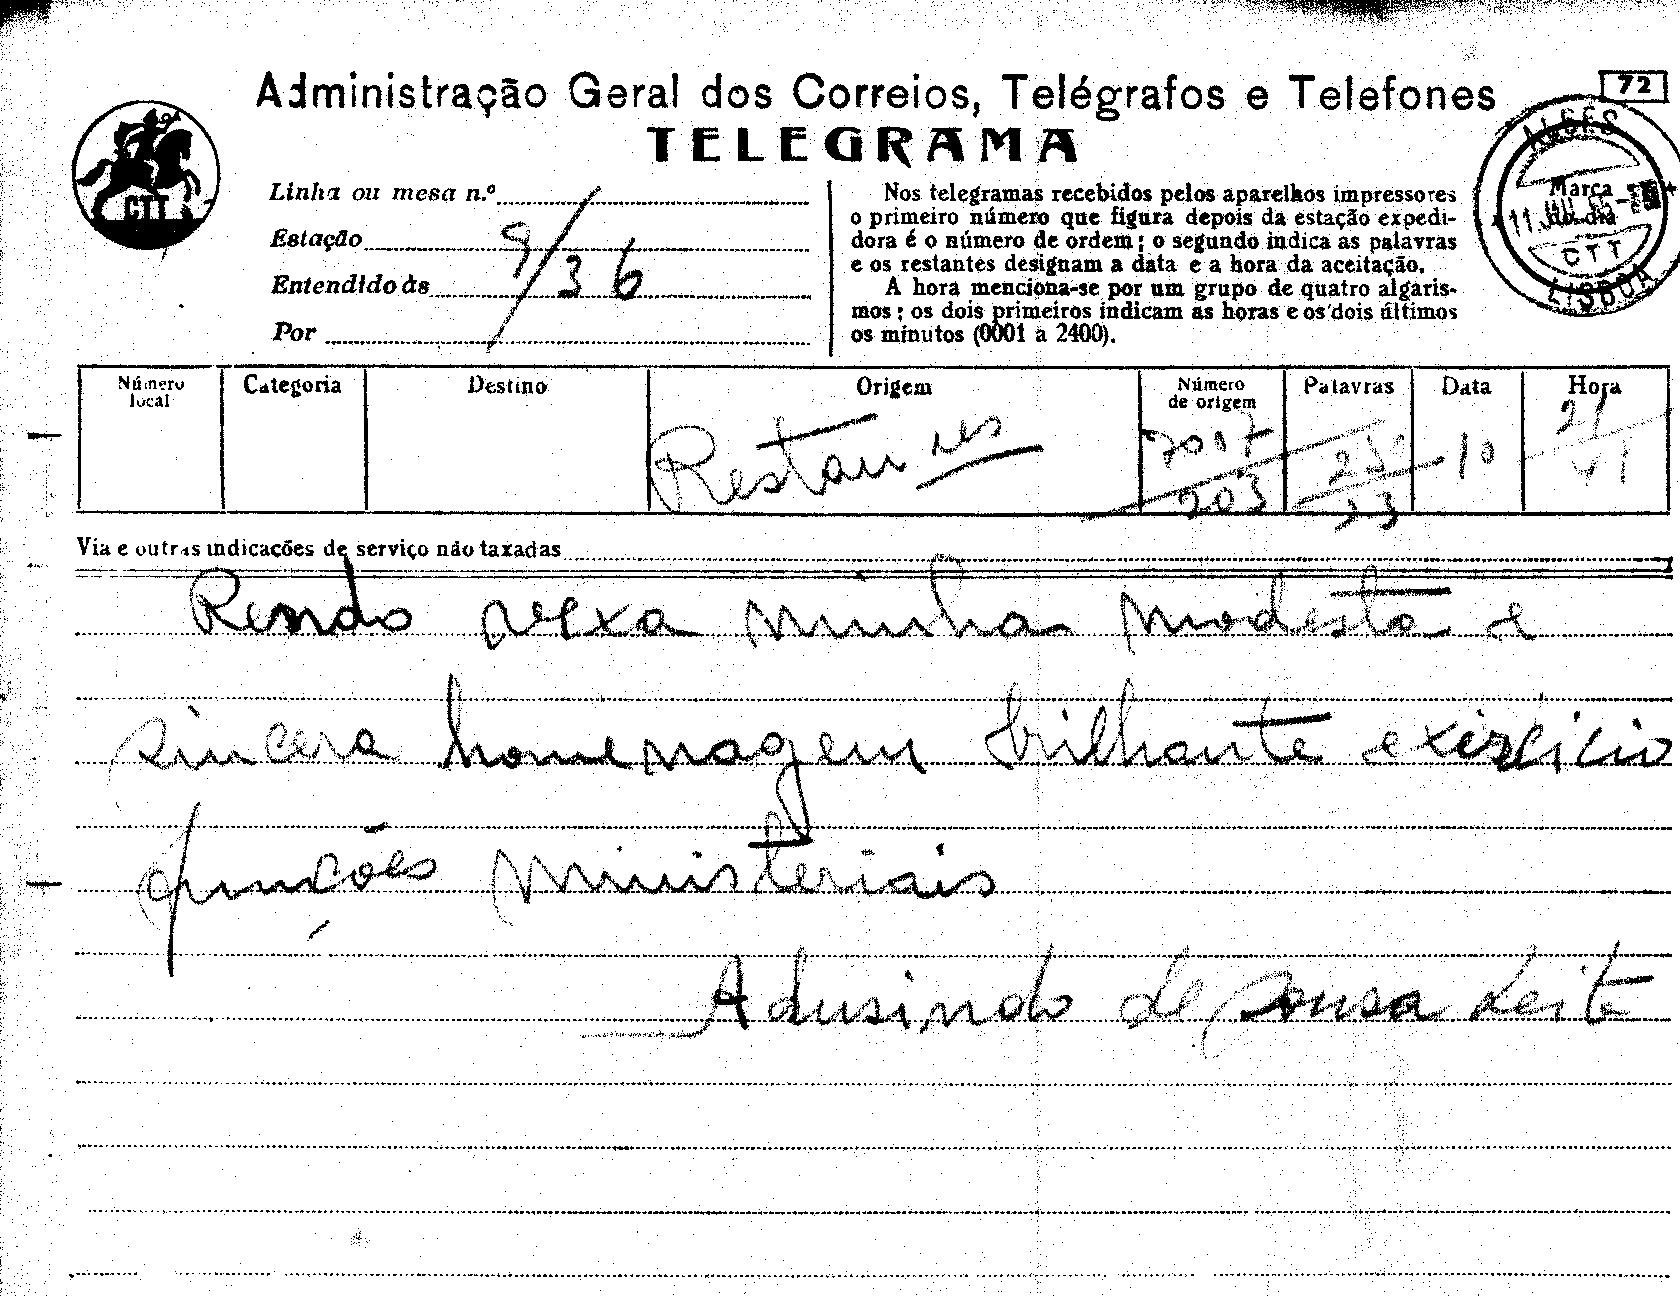 72
Administração Geral dos Correios, Telégrafos e Telefones
TELEGRAMA
CTT
Linha ou mesa n.º
Estação
Entendido às 9/36
Por
Nos telegramas recebidos pelos aparelhos impressores
o primeiro número que figura depois da estação expedi-
dora é o número de ordem; o segundo indica as palavras
e os restantes designam a data e a hora da aceitação.
A hora menciona-se por um grupo de quatro algaris-
mos; os dois primeiros indicam as horas e os dois últimos
os minutos (0001 a 2400).
ALGÉS
Marca do dia
11 JUL
CTT
LISBOA
Número local Categoria Destino Origem Número de origem Palavras Data Hora
203 23 10 21
Via e outras indicações de serviço não taxadas
Rendo vexa minha modesta e
sincera homenagem brilhante exercício
funções ministeriais
Adusindo de Sousa Leite